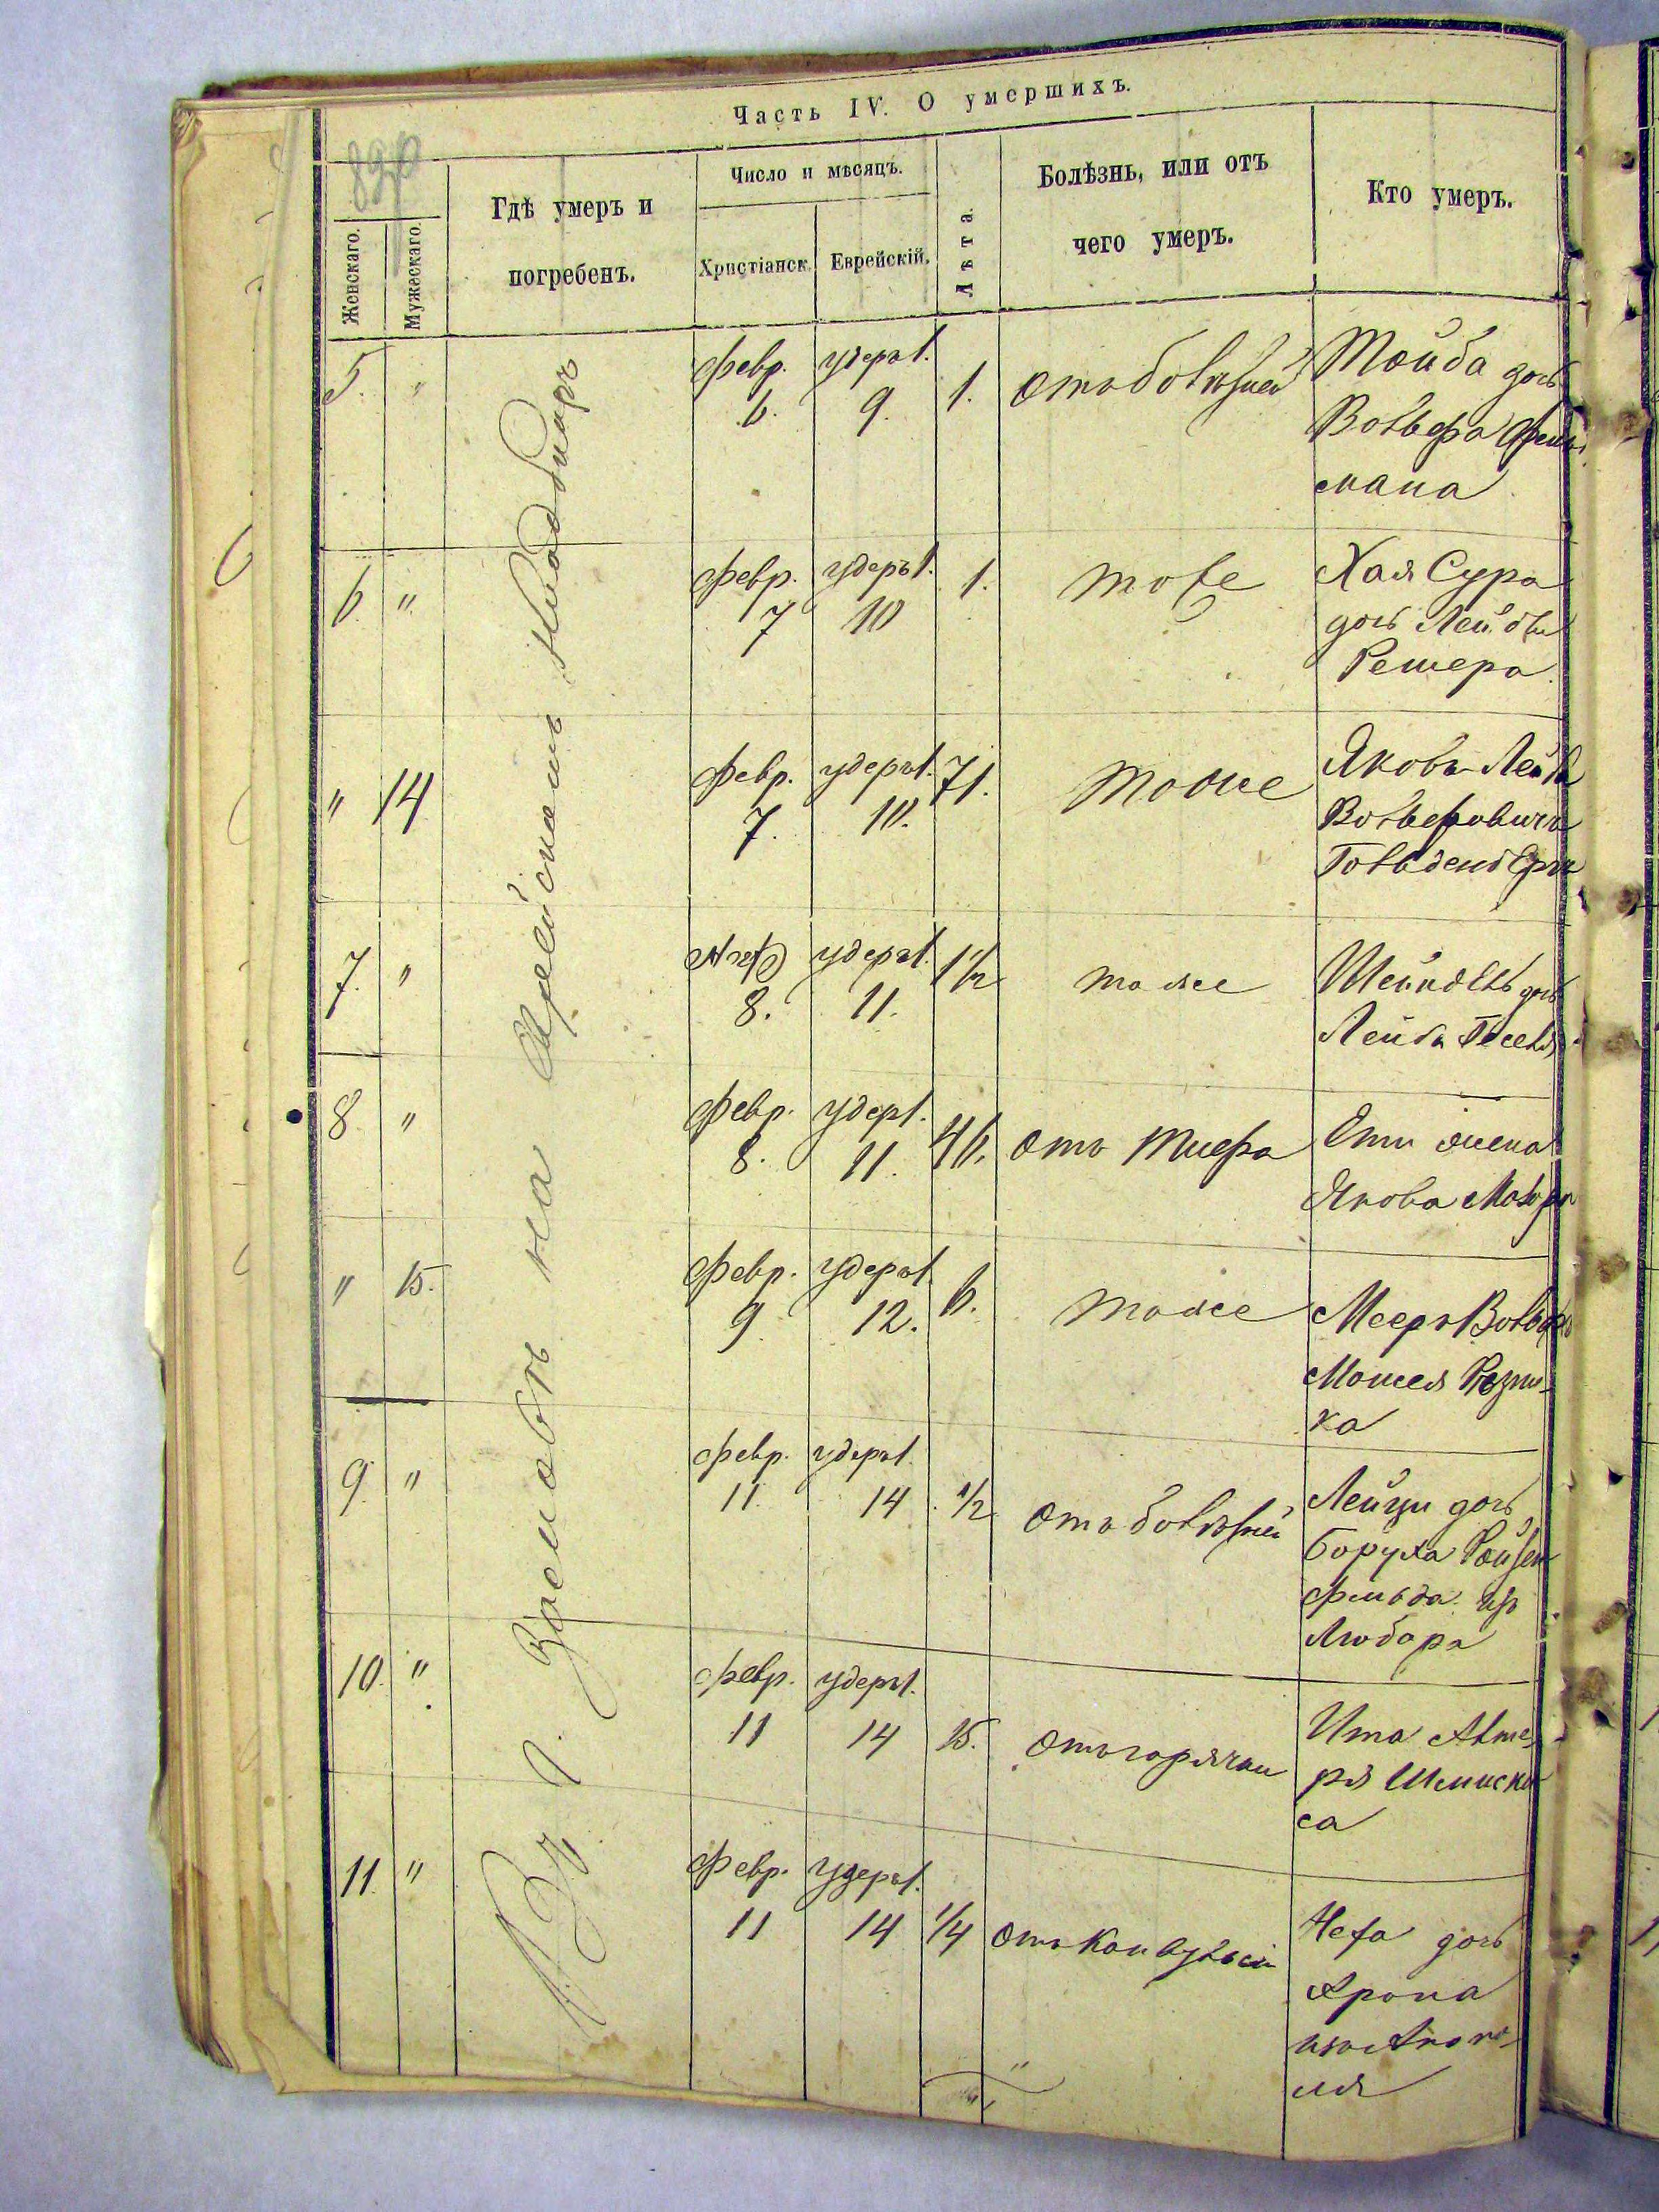 Часть IV. О умершихъ.
890
Женскаго.
Мужескаго.
Гдѣ умеръ и
погребенъ.
Число и мѣсяцъ.
Христіанск.
Еврейскій.
Лѣта.
Болѣзнь, или отъ
чего умеръ.
Кто умеръ.
Въ г. Заславѣ на Еврейскомъ Кладбищѣ
5. " Февр. Удеръ 1. 1. Отъ болѣзней Тойба дочь
6. 9. Вольфа
мана
6. " Февр. Удеръ 1. 1. тоже Хая Сура
7 10 дочь Лейбы
Решера
" 14 Февр. Удеръ 1. 71. тоже Яковъ Лейба
7. 10. Вольфовичъ
Гольденбергъ
7. " Февр. Удеръ 1. 1 1/2 тоже Шейндль дочь
8. 11. Лейбы
8 " Февр. Удеръ 1. 46. Отъ Тифа Ети жена
8. 11. Якова
" 15. Февр. Удеръ 1. 6. тоже Мееръ Вольфъ
9 12. Мошея Резни-
ка
9. " Февр. Удеръ 1. 1/2 Отъ болѣзней Лейци дочь
11. 14 Боруха Ройзен
фельда изъ
Любара
10. " Февр. Удеръ 1. 15. Отъ горячки Ита
11 14
са
11. " Февр. Удеръ 1. 1/4 Отъ Конвульсій Неха дочь
11 14 Арона
изъ